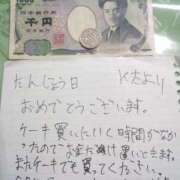 1000
日本銀行券
千円
たんじょう日
Kちより
おめでとうございます。
ケーキ買いにいく時間がなか
ったのでお金だけ置いときます。
またケーキでも買ってください。